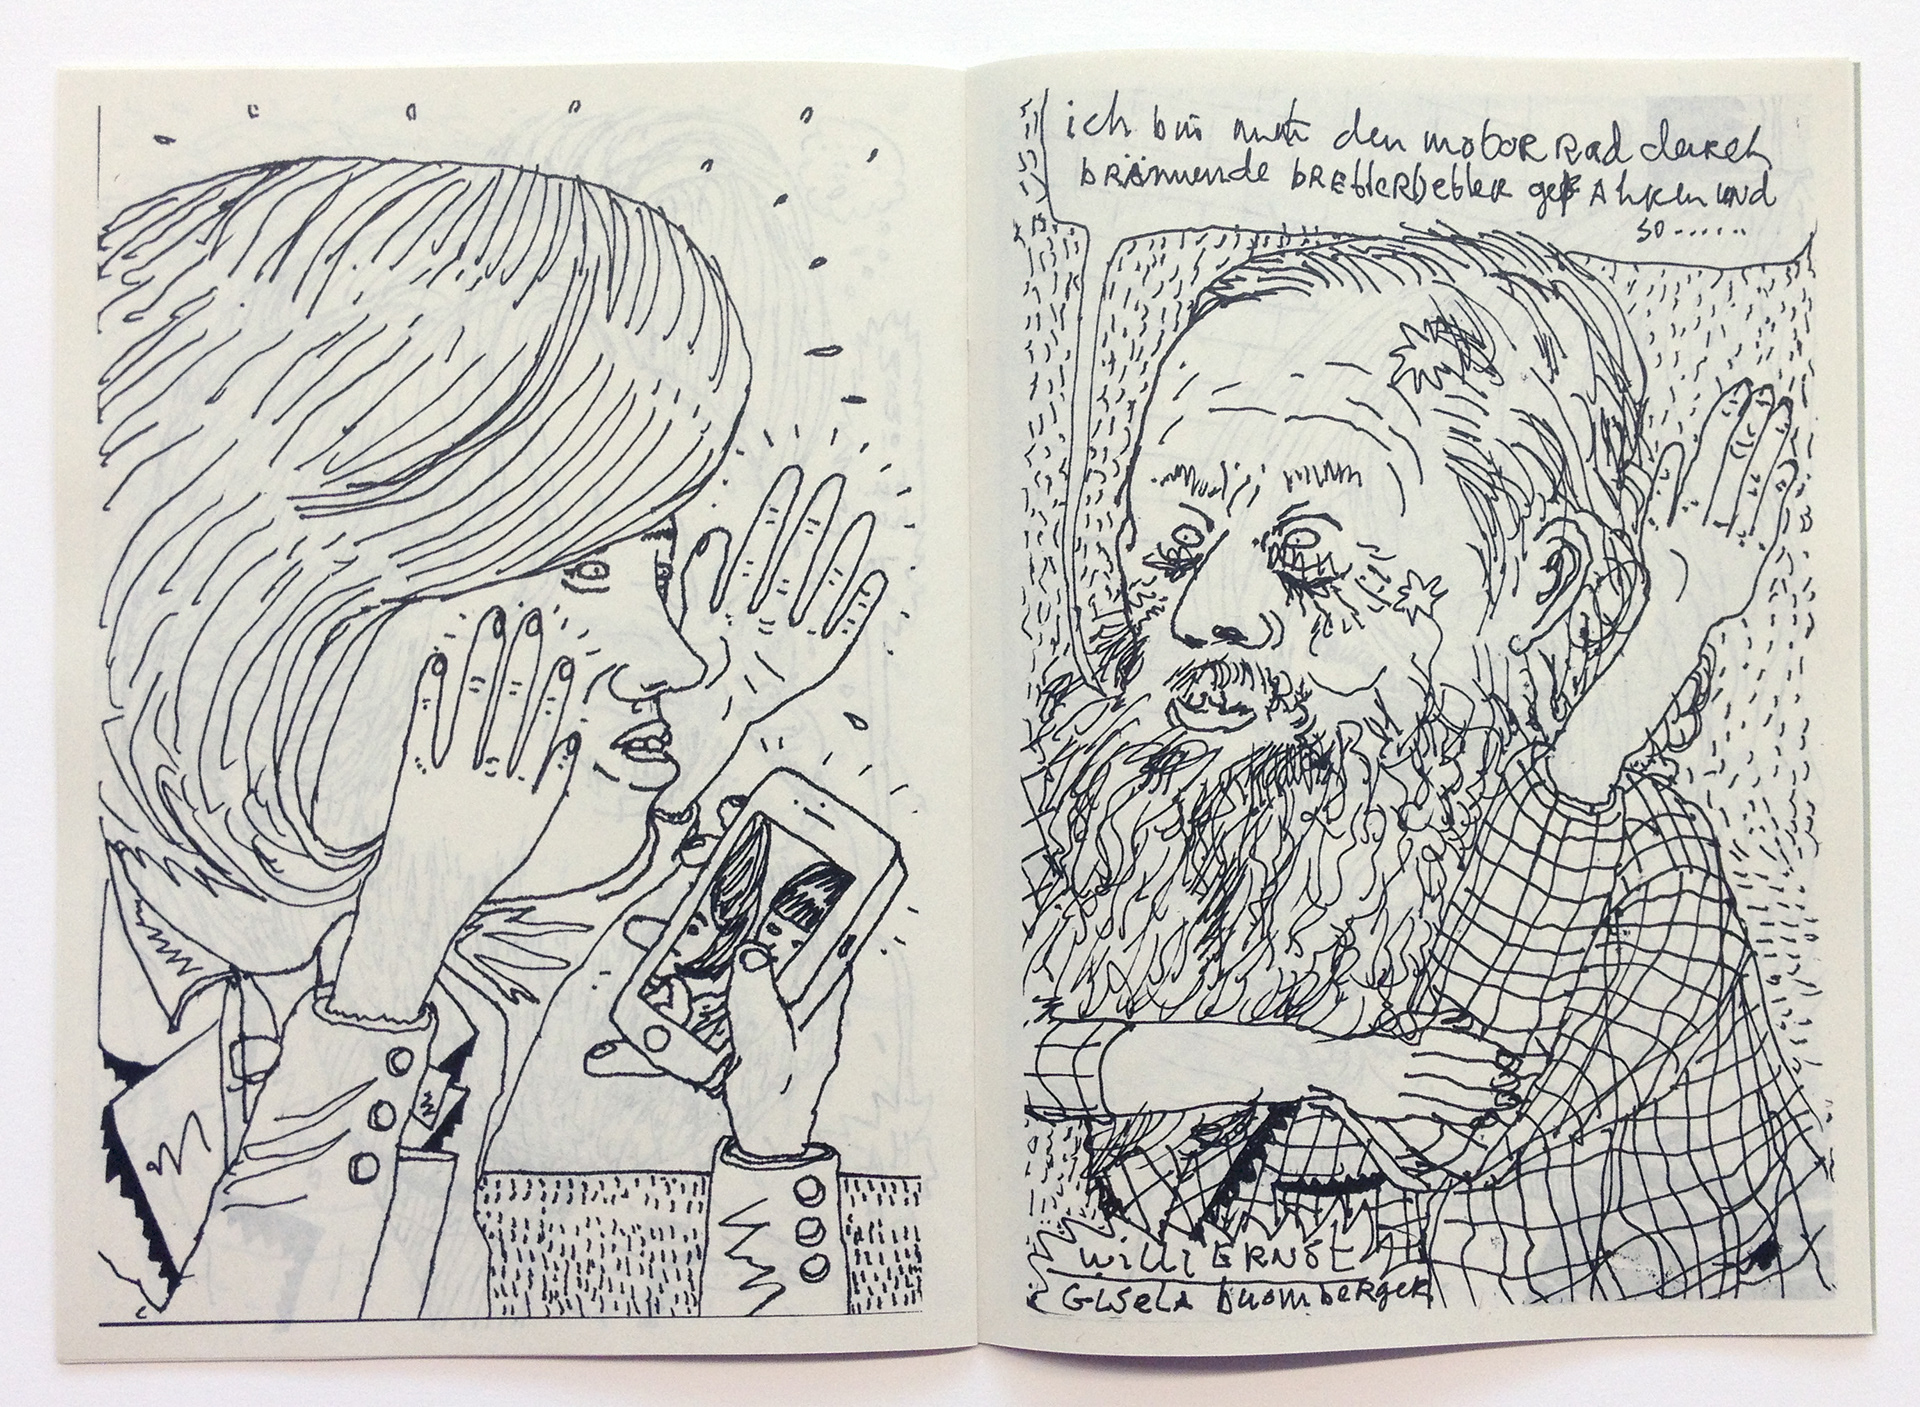 ich bin mit den motorRad durch
bRännende bREttERbetteR gefAhren und
so......
Willi ERNSt
GisELA buombeRgeR